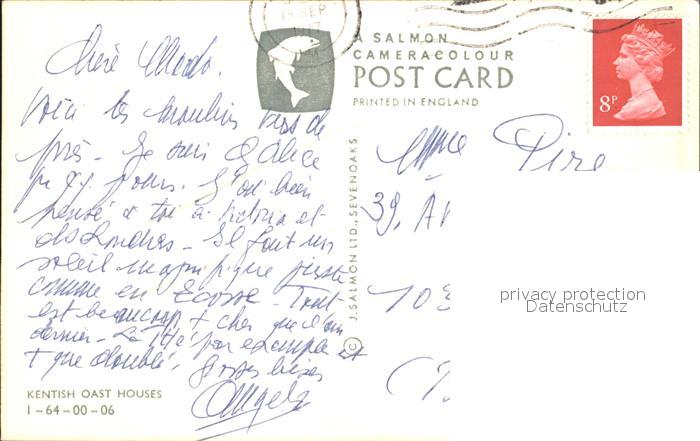 15 SEP
A SALMON
CAMERACOLOUR
POST CARD
PRINTED IN ENGLAND
8P
Chère
Voici les moulins vus de
près - Je suis chez Alice
pr 8 jours. J'ai bien
pensé à toi à Victoria et
ds Londres - Il fait un
soleil magnifique juste
comme en Ecosse - Tout
est beaucoup + cher que l'an
dernier - Le thé par exemple est
+ que doublé.
Grosses bises
Angela
KENTISH OAST HOUSES
1-64-00-06
© J. SALMON LTD., SEVENOAKS
Mme Pire
39, A
privacy protection
Datenschutz